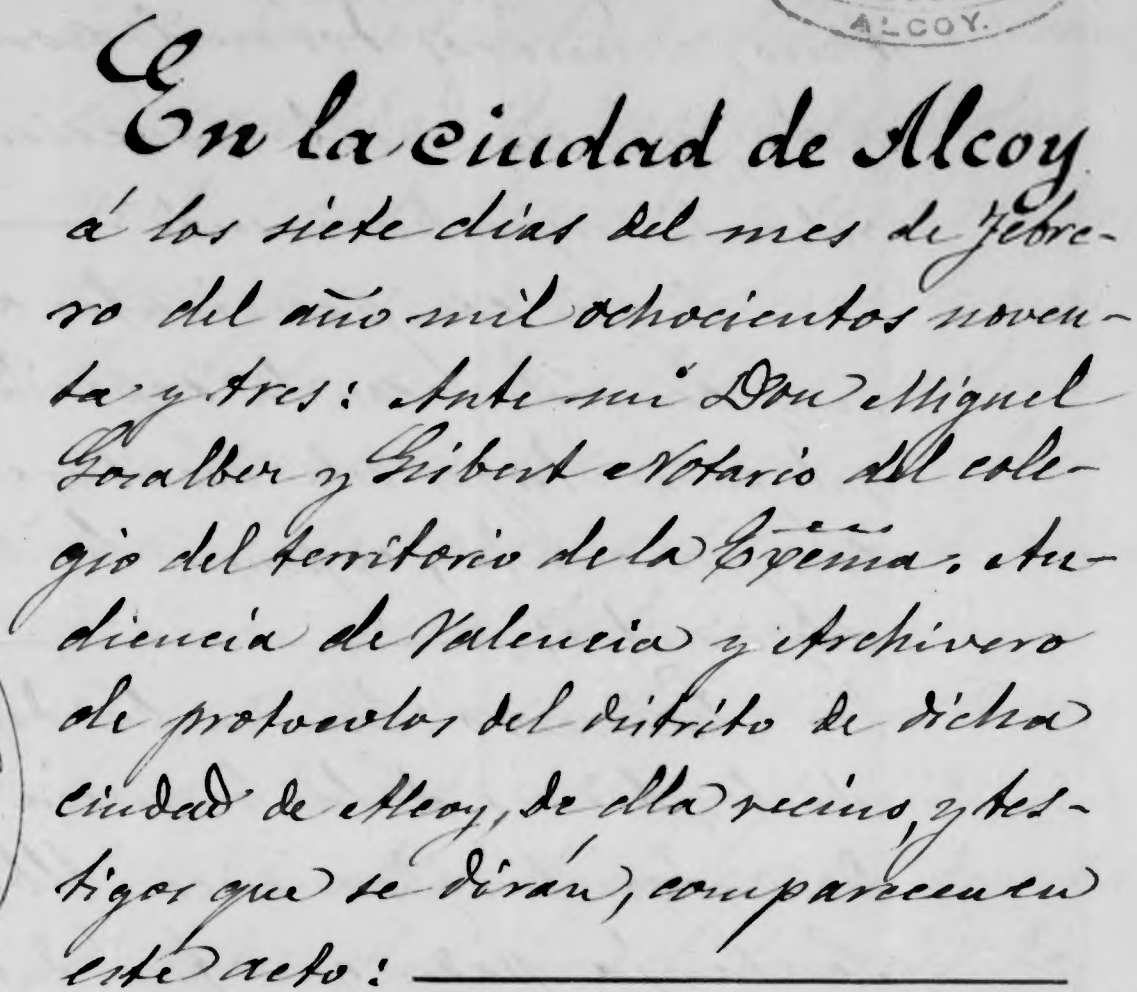 ALCOY.
En la ciudad de Alcoy
á los siete dias del mes de Febre-
ro del año mil ochocientos noven-
ta y tres: Ante mi Don Miguel
Gosalbez y Gisbert Notario del cole-
gio del territorio de la Excma. Au-
diencia de Valencia y Archivero
de protocolos del distrito de dicha
ciudad de Alcoy, de ella vecino, y tes-
tigos que se dirán, comparecen en
este acto: